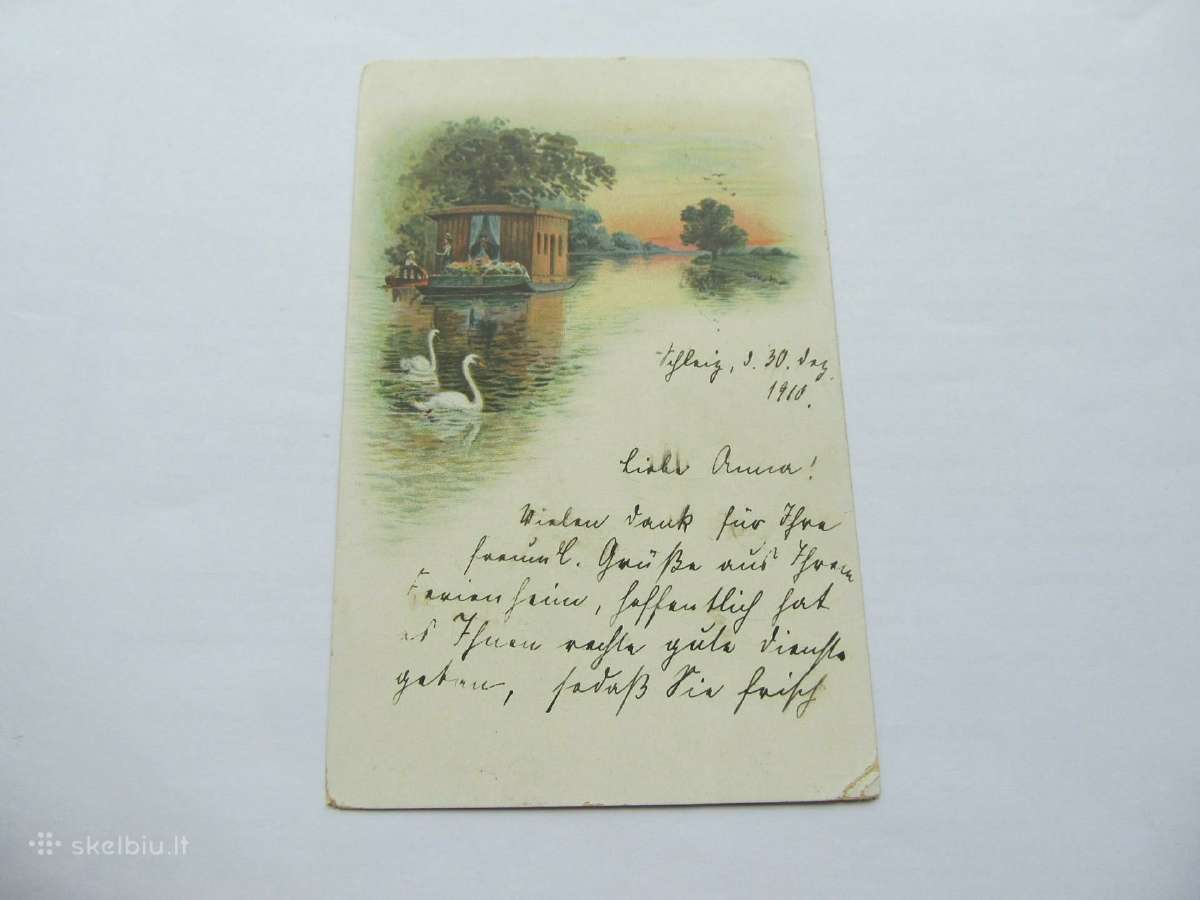 Schleiz, d. 30. Dez.
1910.
Liebe Anna!
Vielen Dank für Ihre
freundl. Grüße aus Ihrem
Ferienheim, hoffentlich hat
es Ihnen rechte gute Dienste
geben, sodaß Sie frisch
skelbiu.lt